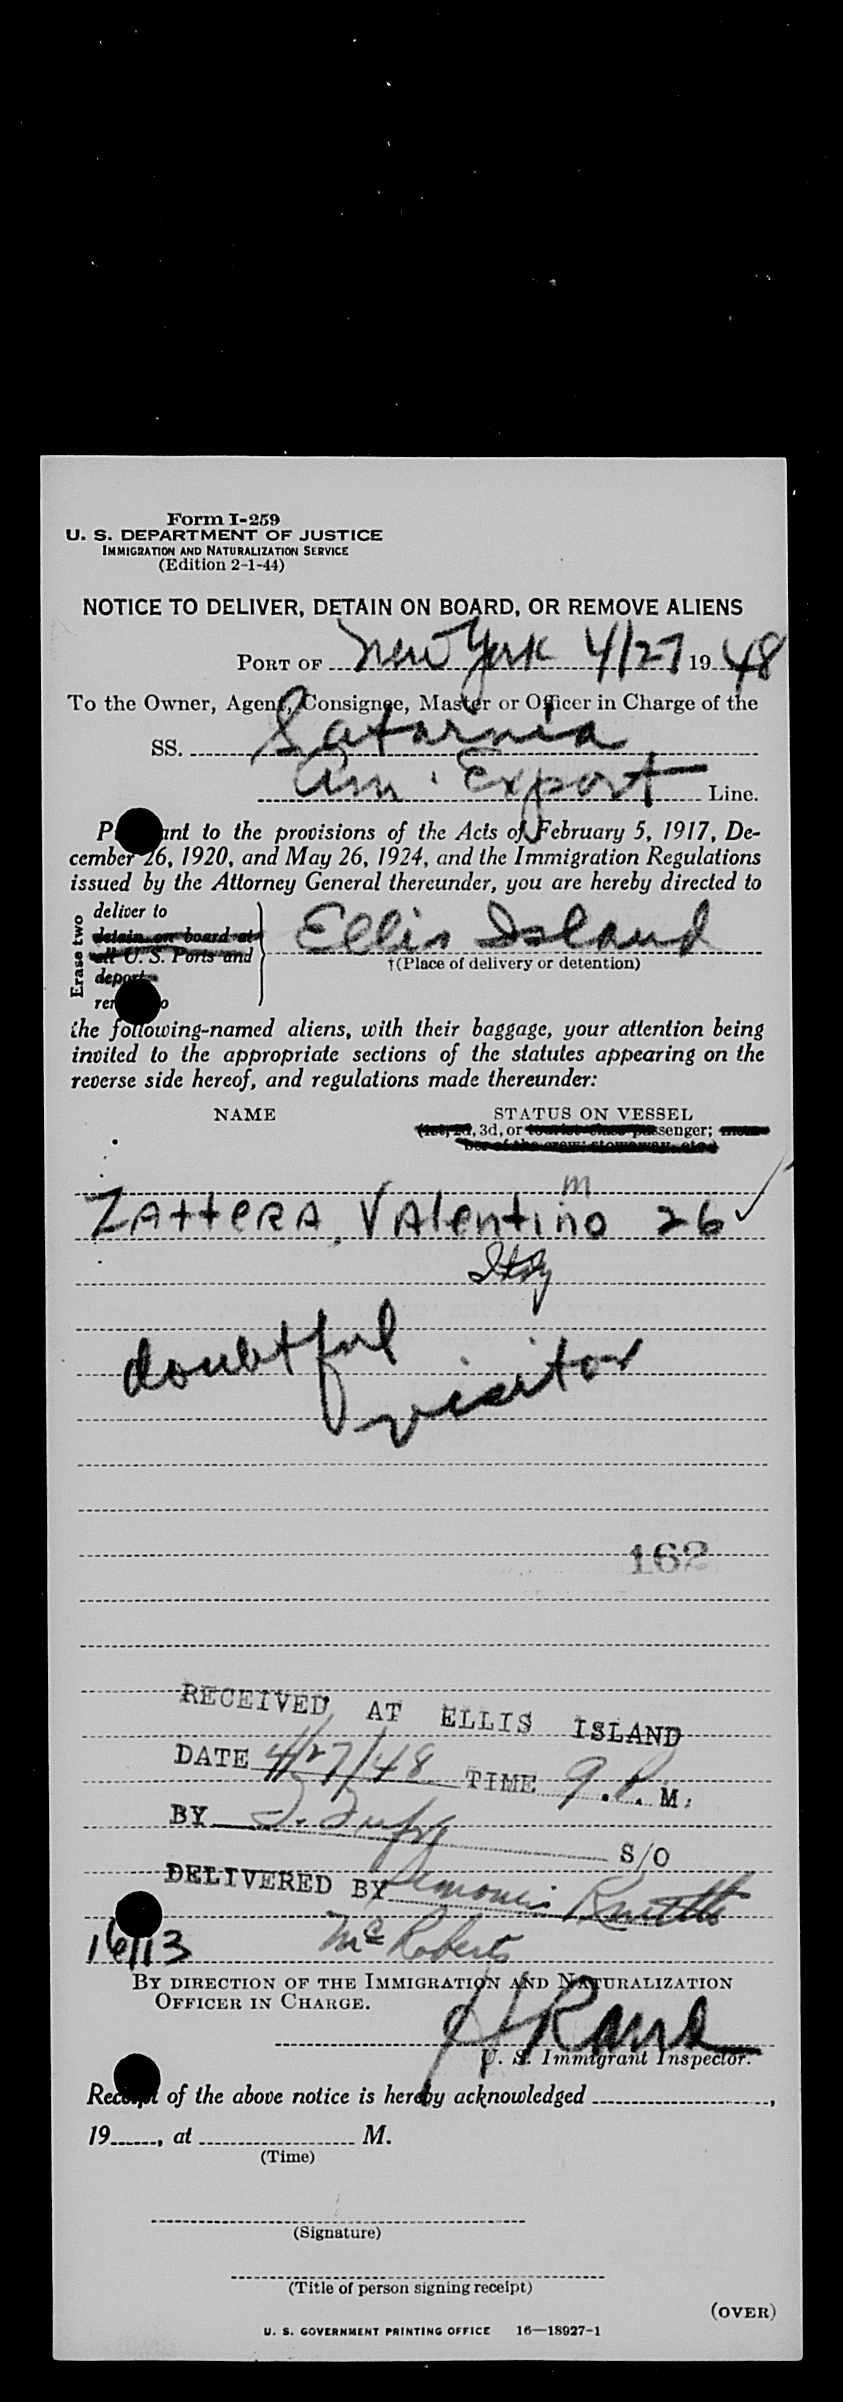 Form I-259
U. S. DEPARTMENT OF JUSTICE
IMMIGRATION AND NATURALIZATION SERVICE
(Edition 2-1-44)
NOTICE TO DELIVER, DETAIN ON BOARD, OR REMOVE ALIENS
PORT OF New York 4/27 1948
To the Owner, Agent, Consignee, Master or Officer in Charge of the
SS. Saturnia
Am. Export Line.
P ant to the provisions of the Acts of February 5, 1917, De-
cember 26, 1920, and May 26, 1924, and the Immigration Regulations
issued by the Attorney General thereunder, you are hereby directed to
Erase two
deliver to
detain on board at
all U. S. Ports and
deport
rem o
Ellis Island
†(Place of delivery or detention)
the following-named aliens, with their baggage, your attention being
invited to the appropriate sections of the statutes appearing on the
reverse side hereof, and regulations made thereunder:
NAME STATUS ON VESSEL
(1st, 2d, 3d, or tourist class passenger; mem-
ber of the crew; stowaway, etc.)
m
ZATTERA, VAlentino 26 ✓
Italy
doubtful
visitor
162
RECEIVED AT ELLIS ISLAND
DATE 4/27/48 TIME 9.P. M.
BY S/O
DELIVERED BY
16113 McRoberts
BY DIRECTION OF THE IMMIGRATION AND NATURALIZATION
OFFICER IN CHARGE.
U. S. Immigrant Inspector.
Receipt of the above notice is hereby acknowledged ,
19 , at M.
(Time)
(Signature)
(Title of person signing receipt)
(OVER)
U. S. GOVERNMENT PRINTING OFFICE 16—18927-1